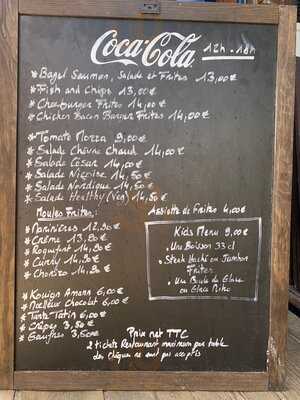 Coca-Cola 12h - 18h
* Bagel Saumon, Salade et Frites 13,00€
* Fish and Chips 13,00€
* Cheeseburger Frites 14,00€
* Chicken Bacon Burger Frites 14,00€
* Tomate Mozza 9,00€
* Salade Chèvre Chaud 14,00€
* Salade César 14,00€
* Salade Niçoise 14,50€
* Salade Nordique 14,50€
* Salade Healthy (Veg) 14,50€
Moules Frites : Assiette de Frites 4,00€
* Marinières 12,90€
* Crème 13,90€
* Roquefort 14,90€
* Curry 14,90€
* Chorizo 14,90€
Kids Menu 9,00€
• Une Boisson 33 cl
• Steak Haché ou Jambon
Frites
• Une Boule de Glace
ou Glace
* Kouign Amann 6,00€
* Moelleux Chocolat 6,00€
* Tarte Tatin 6,00€
* Crêpes 3,50€
* Gaufres 3,50€
Prix net TTC
2 tickets Restaurant maximum par table
des chèques ne sont pas acceptés